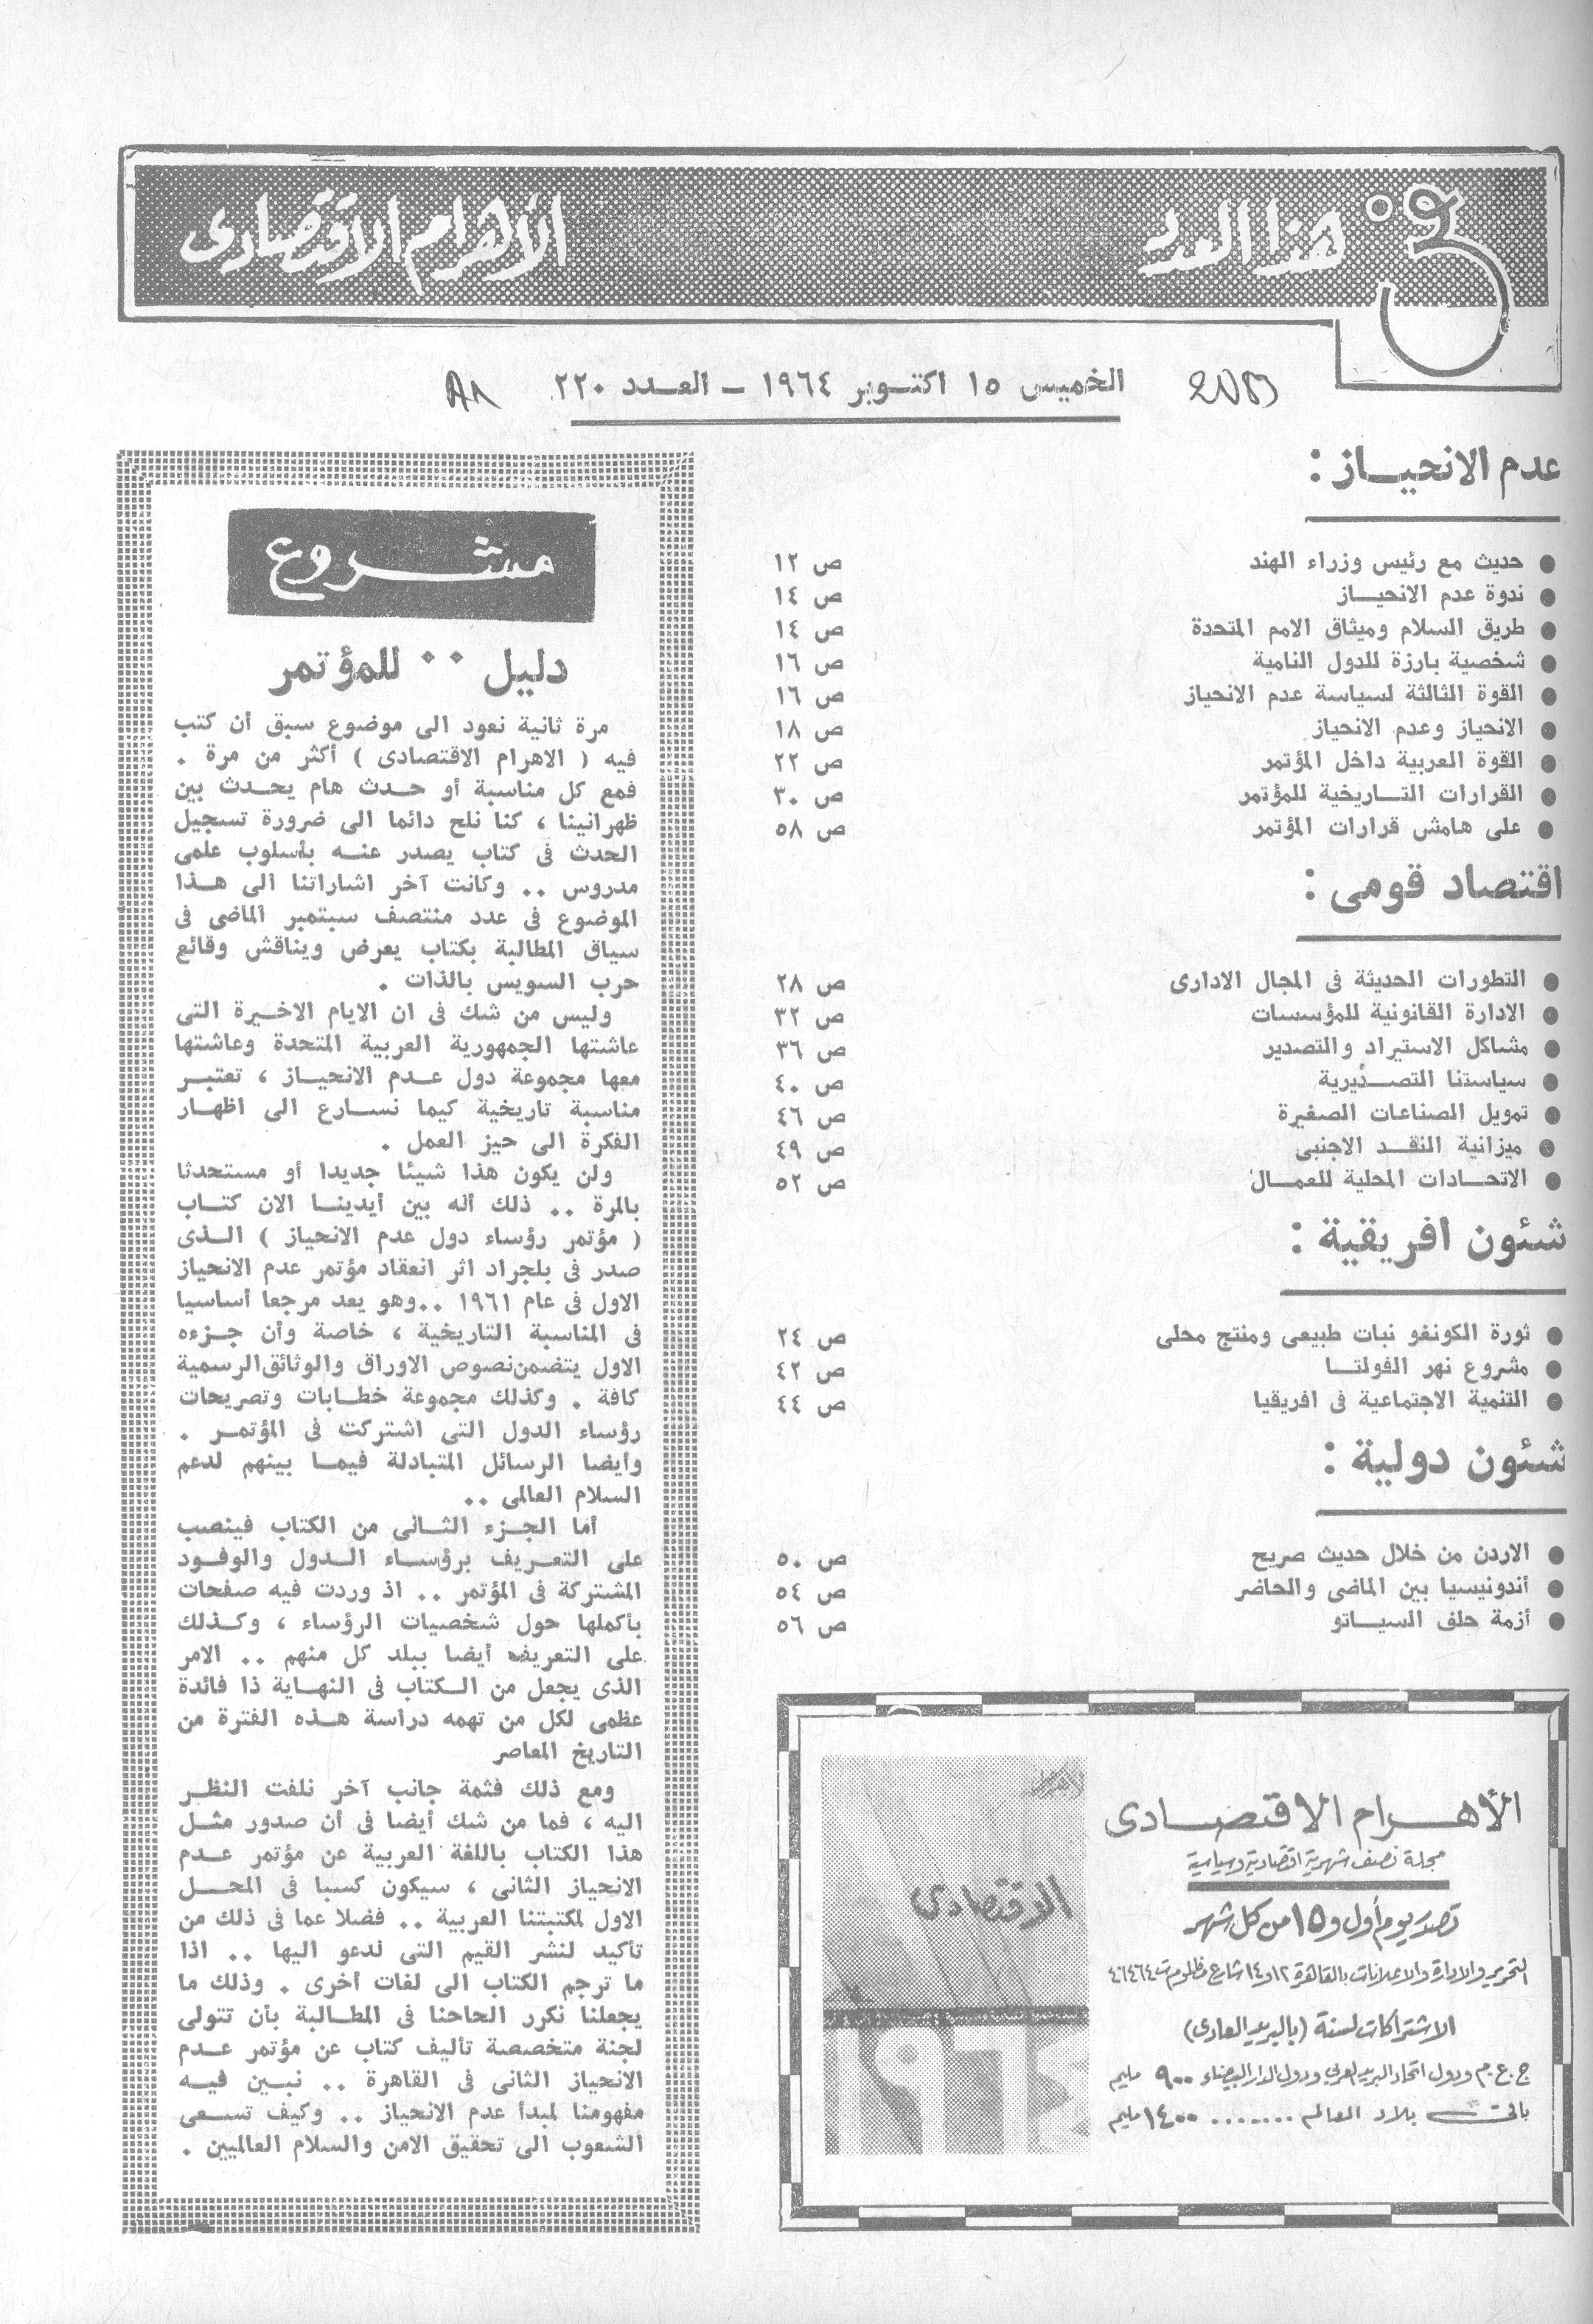 في هذا العدد
الأهرام الاقتصادى
الخميس ١٥ اكتوبر ١٩٦٤ - العدد ٢٢٠
عدم الانحياز :
● حديث مع رئيس وزراء الهند ص ١٢
● ندوة عدم الانحياز ص ١٤
● طريق السلام وميثاق الامم المتحدة ص ١٤
● شخصية بارزة للدول النامية ص ١٦
● القوة الثالثة لسياسة عدم الانحياز ص ١٦
● الانحياز وعدم الانحياز ص ١٨
● القوة العربية داخل المؤتمر ص ٢٢
● القرارات التاريخية للمؤتمر ص ٣٠
● على هامش قرارات المؤتمر ص ٥٨
اقتصاد قومى :
● التطورات الحديثة فى المجال الادارى ص ٢٨
● الادارة القانونية للمؤسسات ص ٣٢
● مشاكل الاستيراد والتصدير ص ٣٦
● سياستنا التصديرية ص ٤٠
● تمويل الصناعات الصغيرة ص ٤٦
● ميزانية النقد الاجنبى ص ٤٩
● الاتحادات المحلية للعمال ص ٥٢
شئون افريقية :
● ثورة الكونغو نبات طبيعى ومنتج محلى ص ٢٤
● مشروع نهر الفولتا ص ٤٢
● التنمية الاجتماعية فى افريقيا ص ٤٤
شئون دولية :
● الاردن من خلال حديث صريح ص ٥٠
● أندونيسيا بين الماضى والحاضر ص ٥٤
● أزمة حلف السياتو ص ٥٦
الأهرام الاقتصادى
مجلة نصف شهرية اقتصادية وسياسية
تصدر يوم أول و ١٥ من كل شهر
التحرير والادارة والاعلانات بالقاهرة ١٢ و ١٤ شارع مظلوم ت ٤٦٤٦٤
الاشتراكات لسنة (بالبريد العادى)
ج.ع.م ودول اتحاد البريد العربى ودول الدار البيضاء ٩٠٠ مليم
باقى بلاد العالم ....... ١٤٠٠ مليم
الاقتصادى
مشروع
دليل .. للمؤتمر
مرة ثانية نعود الى موضوع سبق أن كتب
فيه ( الاهرام الاقتصادى ) أكثر من مرة .
فمع كل مناسبة أو حدث هام يحدث بين
ظهرانينا ، كنا نلح دائما الى ضرورة تسجيل
الحدث فى كتاب يصدر عنه بأسلوب علمى
مدروس .. وكانت آخر اشاراتنا الى هذا
الموضوع فى عدد منتصف سبتمبر الماضى فى
سياق المطالبة بكتاب يعرض ويناقش وقائع
حرب السويس بالذات .
وليس من شك فى ان الايام الاخيرة التى
عاشتها الجمهورية العربية المتحدة وعاشتها
معها مجموعة دول عدم الانحياز ، تعتبر
مناسبة تاريخية كيما نسارع الى اظهار
الفكرة الى حيز العمل .
ولن يكون هذا شيئا جديدا أو مستحدثا
بالمرة .. ذلك أنه بين أيدينا الان كتاب
( مؤتمر رؤساء دول عدم الانحياز ) الذى
صدر فى بلجراد اثر انعقاد مؤتمر عدم الانحياز
الاول فى عام ١٩٦١ ..وهو يعد مرجعا أساسيا
فى المناسبة التاريخية ، خاصة وأن جزءه
الاول يتضمن نصوص الاوراق والوثائق الرسمية
كافة . وكذلك مجموعة خطابات وتصريحات
رؤساء الدول التى اشتركت فى المؤتمر .
وأيضا الرسائل المتبادلة فيما بينهم لدعم
السلام العالمى ..
أما الجزء الثانى من الكتاب فينصب
على التعريف برؤساء الدول والوفود
المشتركة فى المؤتمر .. اذ وردت فيه صفحات
بأكملها حول شخصيات الرؤساء ، وكذلك
على التعريف أيضا ببلد كل منهم .. الامر
الذى يجعل من الكتاب فى النهاية ذا فائدة
عظمى لكل من تهمه دراسة هذه الفترة من
التاريخ المعاصر
ومع ذلك فثمة جانب آخر نلفت النظر
اليه ، فما من شك أيضا فى أن صدور مثل
هذا الكتاب باللغة العربية عن مؤتمر عدم
الانحياز الثانى ، سيكون كسبا فى المحل
الاول لمكتبتنا العربية .. فضلا عما فى ذلك من
تأكيد لنشر القيم التى ندعو اليها .. اذا
ما ترجم الكتاب الى لغات أخرى . وذلك ما
يجعلنا نكرر الحاحنا فى المطالبة بأن تتولى
لجنة متخصصة تأليف كتاب عن مؤتمر عدم
الانحياز الثانى فى القاهرة .. نبين فيه
مفهومنا لمبدأ عدم الانحياز .. وكيف تسعى
الشعوب الى تحقيق الامن والسلام العالميين .